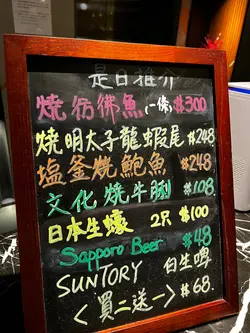 是日推介
燒彷彿魚(一條) $300
燒明太子龍蝦尾 $248
塩釜燒鮑魚 $248
文化燒牛脷 $108
日本生蠔 2只 $100
Sapporo Beer $48
SUNTORY 白生啤
<買二送一> $68.